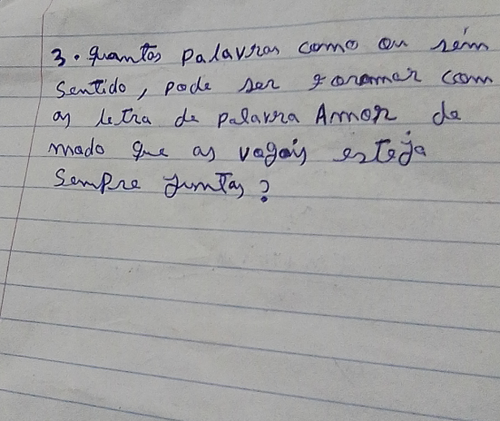 3. quantas palavras como ou sém
sentido, pode ser foramar com
as letra de palavra Amor de
modo que as vogais esteja
sempre juntas?